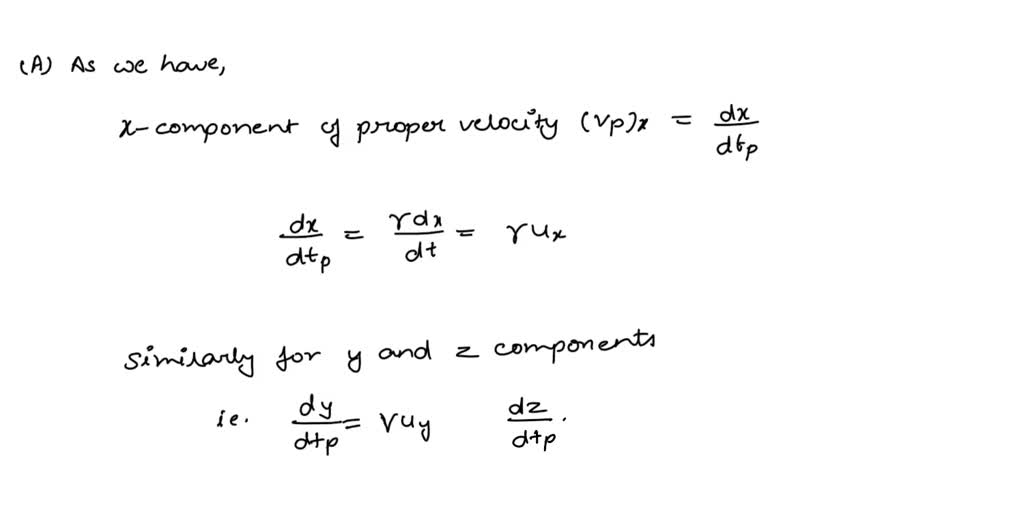 (A) As we have,
x-component of proper velocity (vp)x = dx/dtp
dx/dtp = γdx/dt = γux
similarly for y and z components
ie. dy/dtp = γuy dz/dtp.